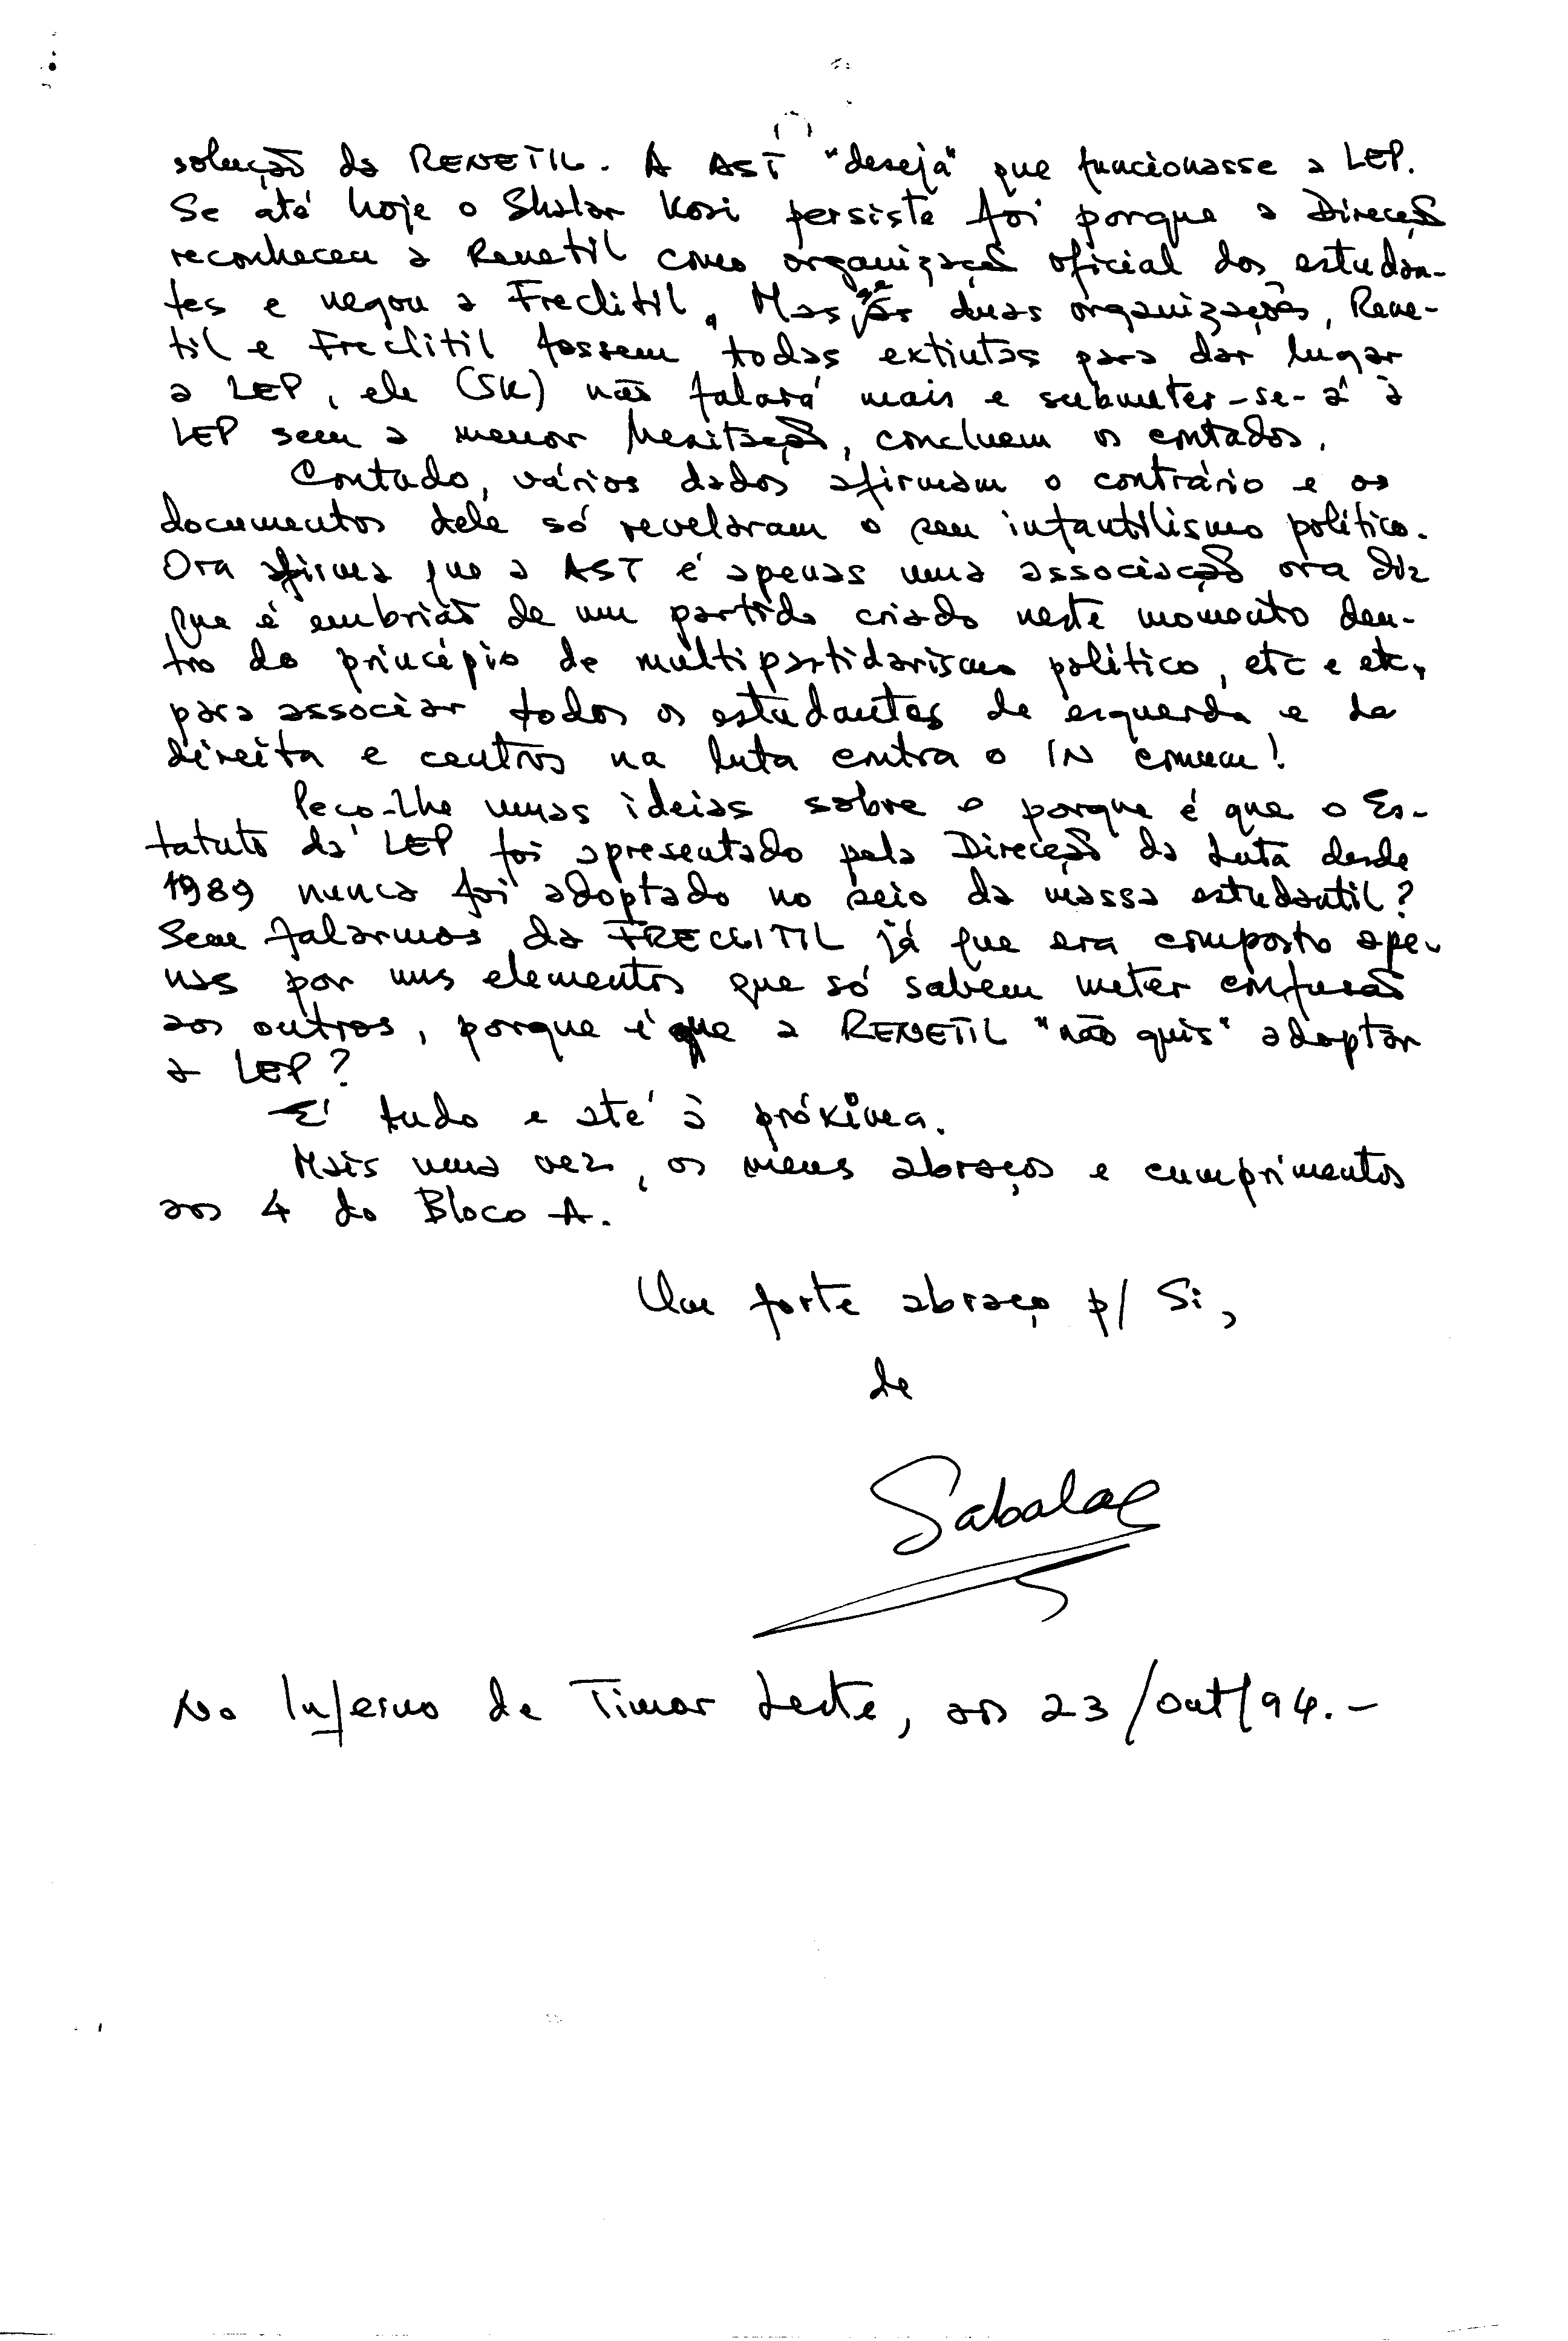 solução da RENETIL. A AST "deseja" que funcionasse a LEP.
Se até hoje o Shalar Kosi persiste foi porque a Direcção
reconheceu a Renetil como organização oficial dos estudan-
tes e negou a Freclitil. Mas, se as duas organizações, Rene-
til e Freclitil fossem todas extintas para dar lugar
a LEP, ele (SK) não falará mais e submeter-se-á à
LEP sem a menor hesitação, concluem os contados.
Contudo, vários dados afirmam o contrário e os
documentos dele só revelaram o seu infantilismo político.
Ora afirma que a AST é apenas uma associação ora diz
que é embrião de um partido criado neste momento den-
tro do princépio de multipartidarismo político, etc e etc,
para associar todos os estudantes de esquerda e da
direita e centros na luta contra o IN comum!
Peço-lhe umas ideias sobre o porque é que o Es-
tatuto da LEP foi apresentado pela Direcção da Luta desde
1989 nunca foi adoptado no seio da massa estudantil?
Sem falarmos da FRECLITIL já que era composto ape-
nas por uns elementos que só sabem meter confusão
aos outros, porque é que a RENETIL "não quis" adoptar
a LEP?
É tudo e até à próxima.
Mais uma vez, os meus abraços e cumprimentos
aos 4 do Bloco A.
Um forte abraço p/ Si,
de
Sabalae
No Inferno de Timor Leste, aos 23/out/94.-